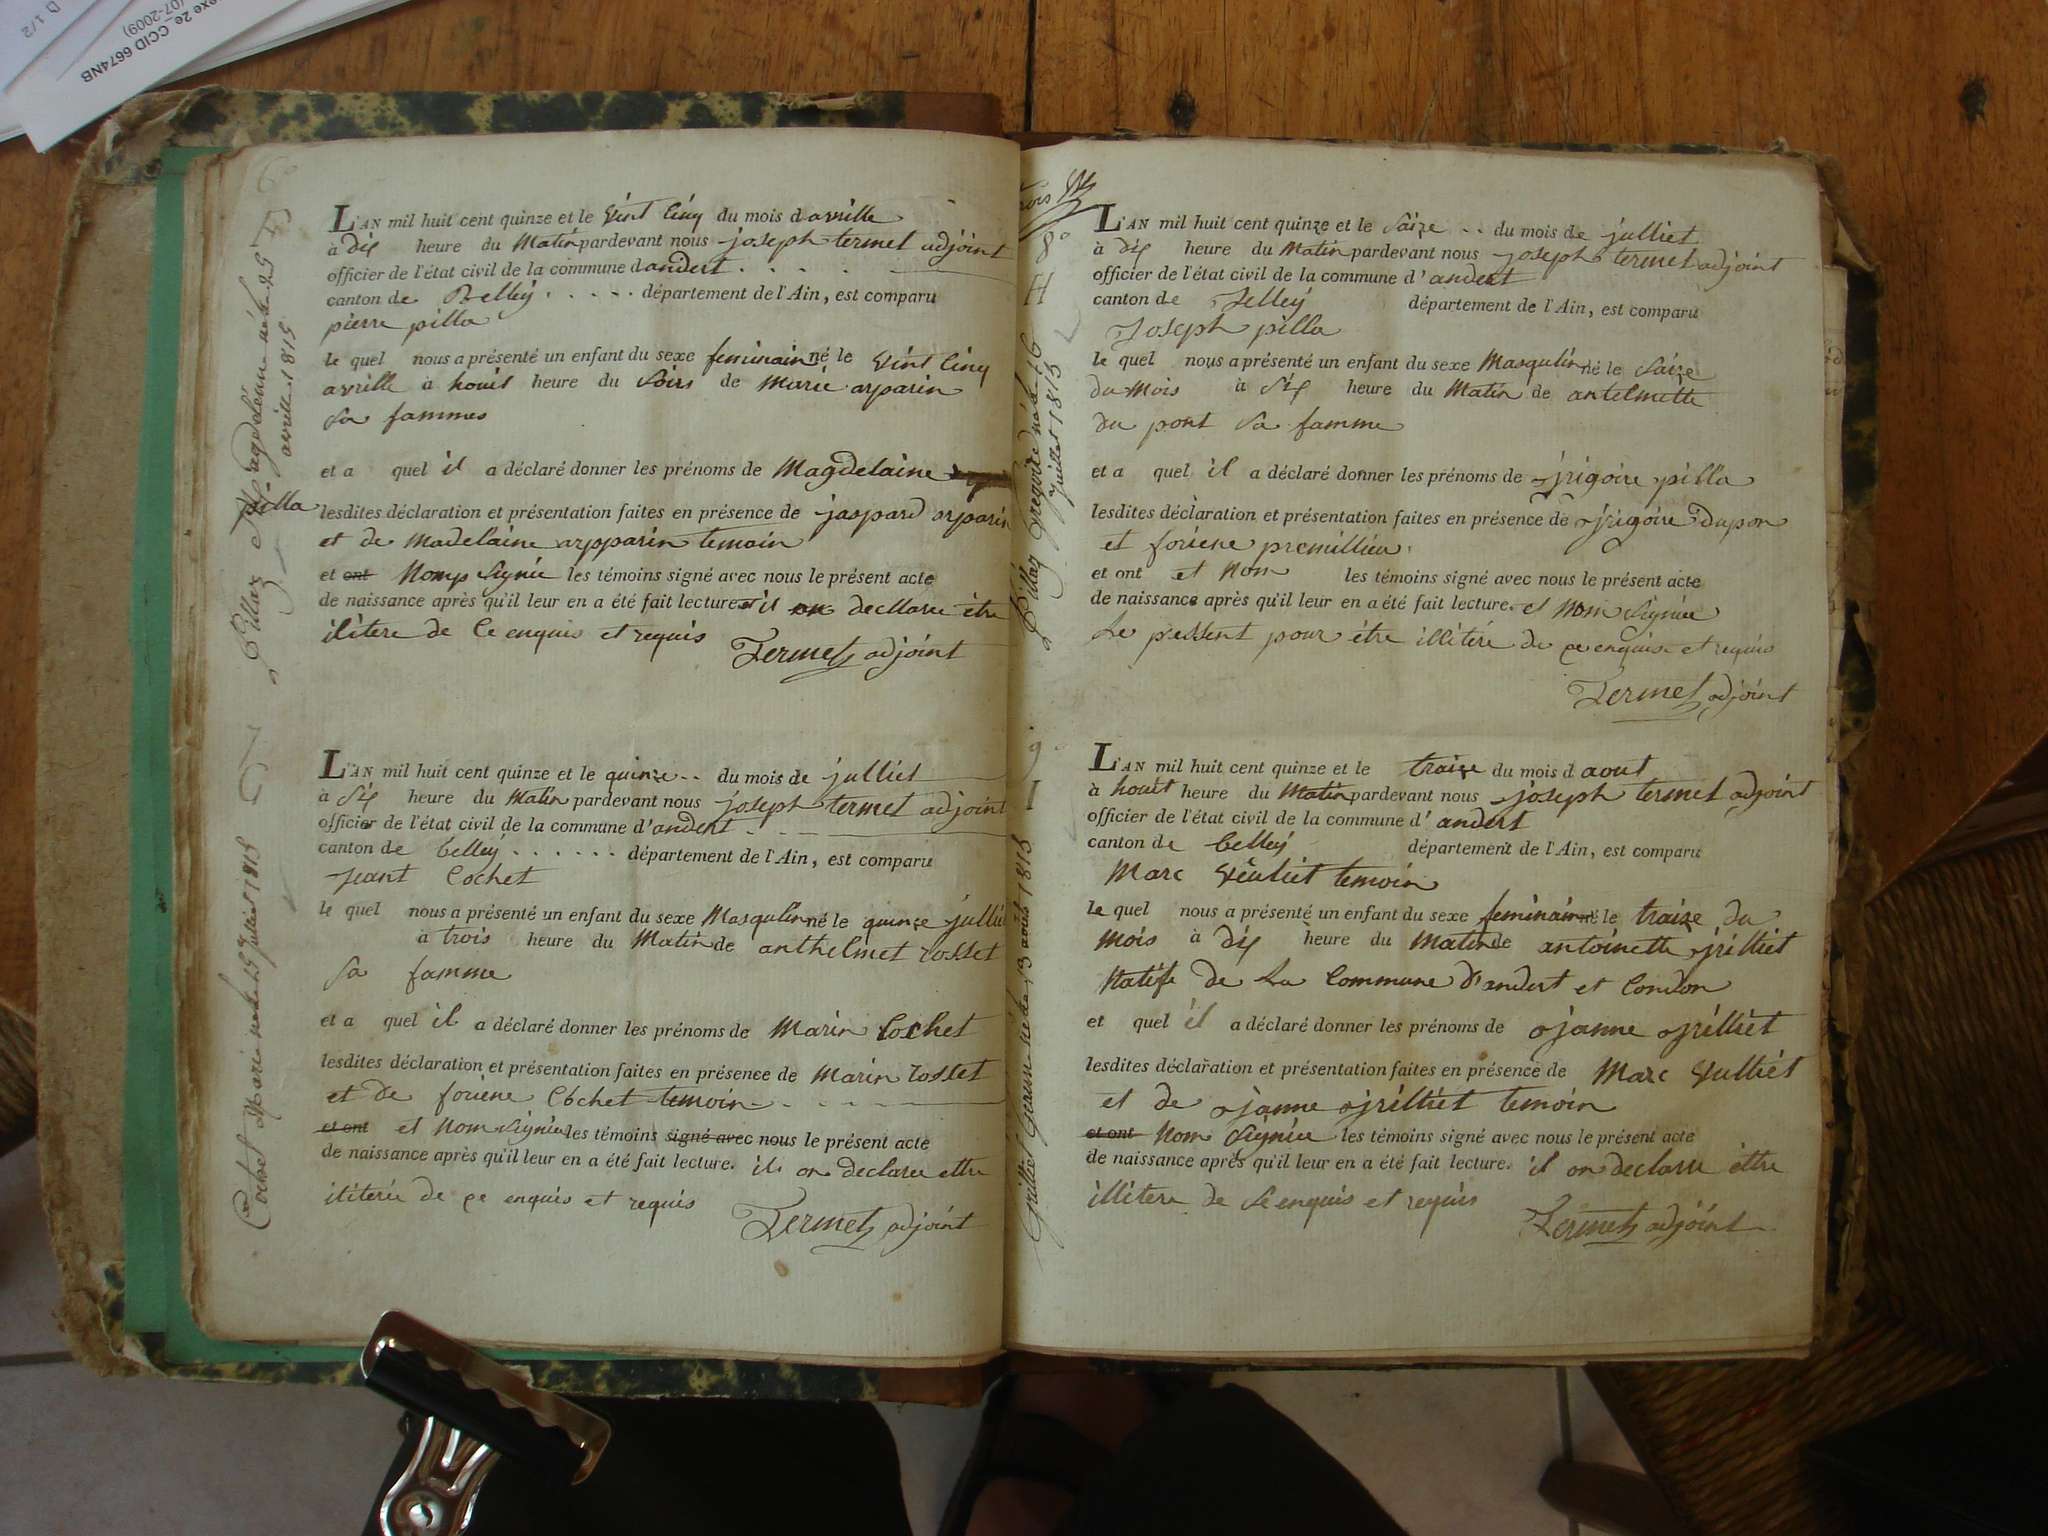 exe 2e_CCID 6674NB
07-2009)
D 1/2
6º
Pillaz Magdelénne née le 25
avrille 1815
L'AN mil huit cent quinze et le vint cinq du mois d avrille
à dix heure du Matin pardevant nous joseph termet adjoint
officier de l'état civil de la commune d andert . . . .
canton de Belley . . . . . département de l'Ain, est comparu
pierre pilla
le quel nous a présenté un enfant du sexe feminain né le vint cinq
avrille à houit heure du soirs de Marie arparin
sa fammes
et a quel il a déclaré donner les prénoms de Magdelaine
pilla
lesdites déclaration et présentation faites en présence de jaspard arparin
et de Madelaine arpparin temoin
et ont Nomp signée les témoins signé avec nous le présent acte
de naissance après qu'il leur en a été fait lecture et il on decllare être
ilitere de ce enquis et requis
Termet adjoint
Cochet Marin né le 15 juillet 1815
L'AN mil huit cent quinze et le quinze . . du mois de julliet
à six heure du Matin pardevant nous joseph termet adjoint
officier de l'état civil de la commune d'andert . . .
canton de belley . . . . . . département de l'Ain, est comparu
jeant Cochet
le quel nous a présenté un enfant du sexe Masqulin né le quinze jullie
à trois heure du Matin de anthelmet rosset
sa famme
et a quel il a déclaré donner les prénoms de Marin Cochet
lesdites déclaration et présentation faites en présence de Marin rosset
et de foriene Cochet temoin . . .
et ont et Nom signée les témoins signé avec nous le présent acte
de naissance après qu'il leur en a été fait lecture. il on declaree ettre
iliterée de ce enquis et requis
Termet adjoint
rois
8º
H
Pillaz Grégoire né le 16
Juillet 1815
L'AN mil huit cent quinze et le saize . . du mois de julliet
à dix heure du Matin pardevant nous joseph termet adjoint
officier de l'état civil de la commune d' andert
canton de Belley département de l'Ain, est comparu
Joseph pilla
le quel nous a présenté un enfant du sexe Masqulin né le saize
du Mois à six heure du Matin de antelmette
du pont sa famme
et a quel il a déclaré donner les prénoms de jrigoire pilla
lesdites déclaration et présentation faites en présence de jrigoire Dupon
et foriene premillieu
et ont et Nom les témoins signé avec nous le présent acte
de naissance après qu'il leur en a été fait lecture. et Nom signée
Le pressent pour être illitéré de ce enquise et requis
Termet adjoint
9º
I
Grilliet Jeanne née le 13 août 1815
L'AN mil huit cent quinze et le traize du mois d aout
à houit heure du Matin pardevant nous joseph termet adjoint
officier de l'état civil de la commune d' andert
canton de belley département de l'Ain, est comparu
Marc temoin
le quel nous a présenté un enfant du sexe feminain né le traize du
Mois à dix heure du Matin de antoinette jrilliet
Natife de La Commune d'andert et Condon
et quel il a déclaré donner les prénoms de janne jrilliet
lesdites déclaration et présentation faites en présence de Marc Vulliet
et de janne jrilliet temoin
et ont Nom signée les témoins signé avec nous le présent acte
de naissance après qu'il leur en a été fait lecture. il on declaree ettre
illitere de se enquis et requis
Termet adjoint